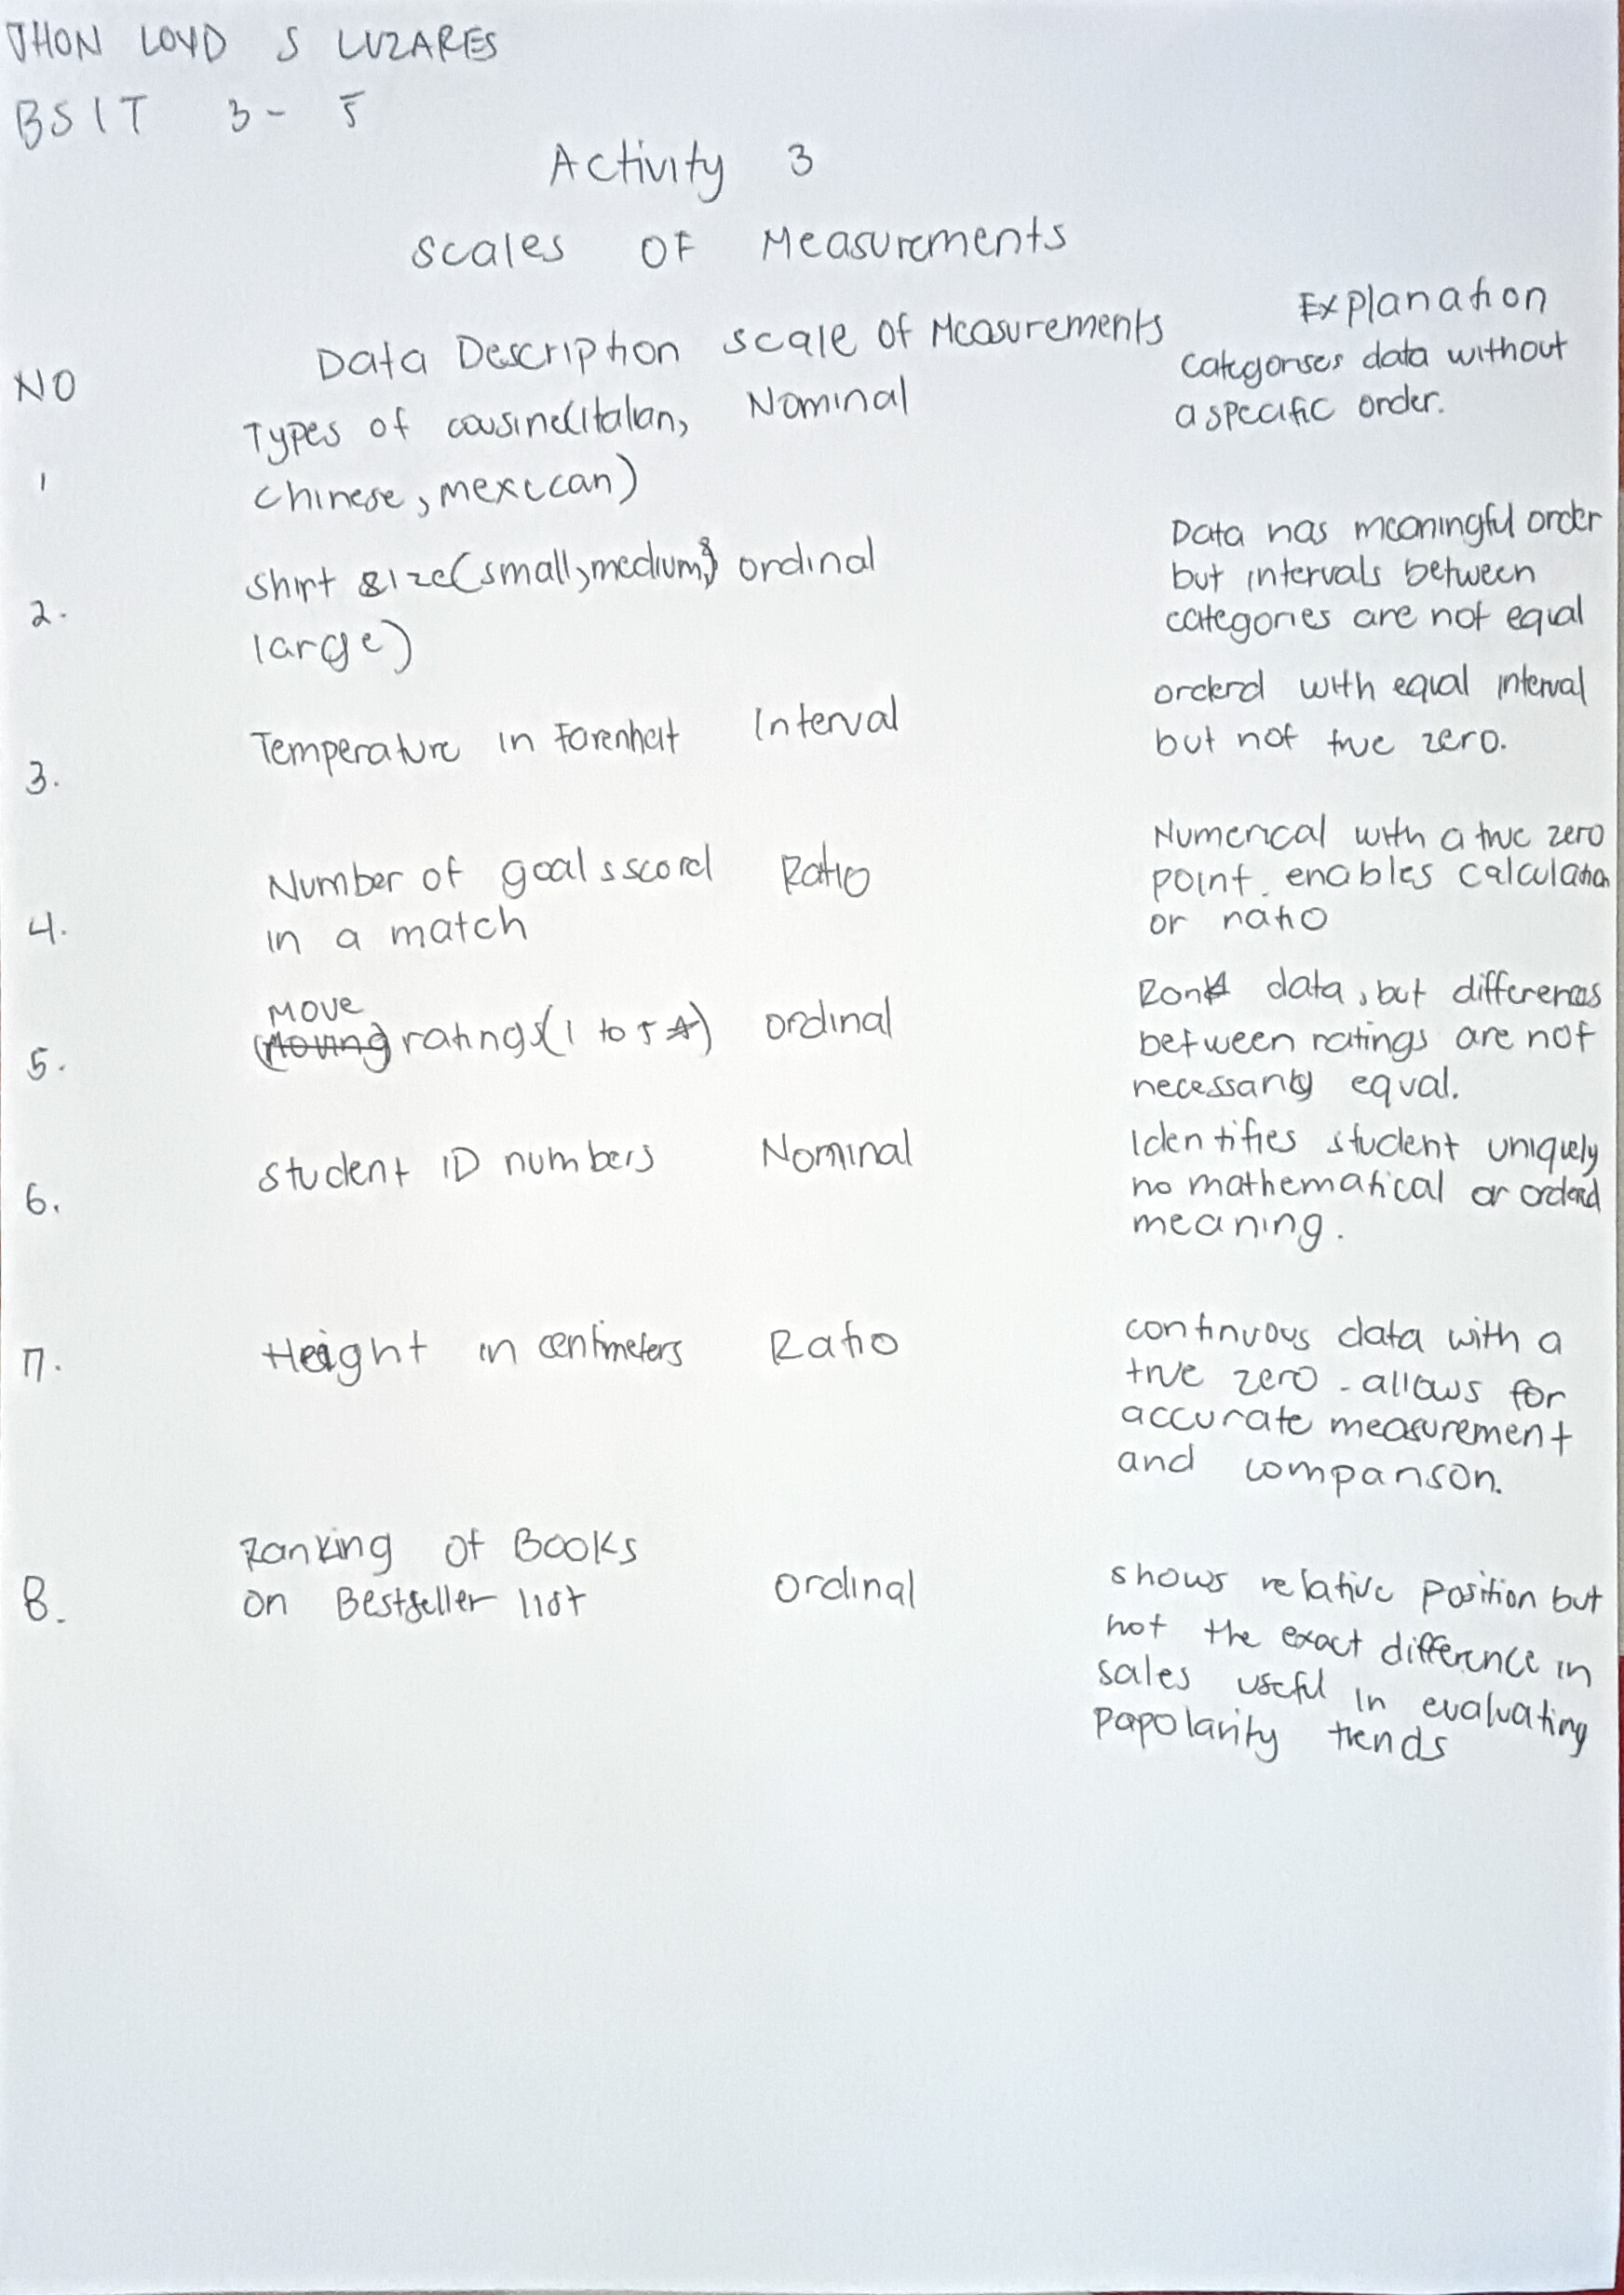 JHON LOYD S LUZARES
BSIT 3-5
Activity 3
Scales OF Measurements
NO Data Description Scale of Measurements Explanation
1 Types of cousine(Italian, Nominal Categorises data without
chinese, mexican) a specific order.
2. Shirt size(small, medium, ordinal Data has meaningful order
large) but intervals between
categories are not equal
3. Temperature in Farenheit Interval orderd with equal interval
but not true zero.
4. Number of goals scord Ratio Numerical with a true zero
in a match point. enables calculation
or ratio
5. Move ratings(1 to 5 ☆) ordinal Rank data, but differences
between ratings are not
necessarily equal.
6. Student ID numbers Nominal Identifies student uniquely
no mathematical or orderd
meaning.
7. Height in centimeters Ratio continuous data with a
true zero - allows for
accurate measurement
and comparison.
8. Ranking Of Books
on Bestseller list Ordinal shows relative position but
not the exact difference in
sales useful in evaluating
Papolarity trends